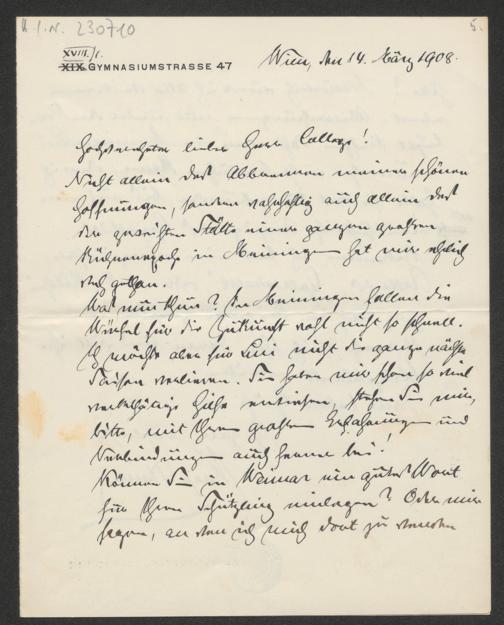 H.I.N. 230710
5.
XVIII/1.
XIX. GYMNASIUMSTRASSE 47
Wien, den 14. März 1908.
Hochverehrter lieber Herr College!
Nicht allein das Abbrennen meiner schönen
Hoffnungen, sondern wahrhaftig auch allein das
der geweihten Stätte einer ganzen großen
Bühnenepoche in Meiningen hat mir ehrlich
weh gethan.
Was nun thun? In Meiningen fallen die
Würfel für die Zukunft wohl nicht so schnell.
Ich möchte aber für nicht die ganze nächste
Saison verlieren. Sie haben mir schon so viel
werkthätige Hilfe erwiesen, stehen Sie mir,
bitte, mit Ihren großen Erfahrungen und
Verbindungen auch ferner bei!
Können Sie in Weimar ein gutes Wort
für Ihren Schützling einlegen? Oder mir
sagen, an wen ich mich dort zu wenden